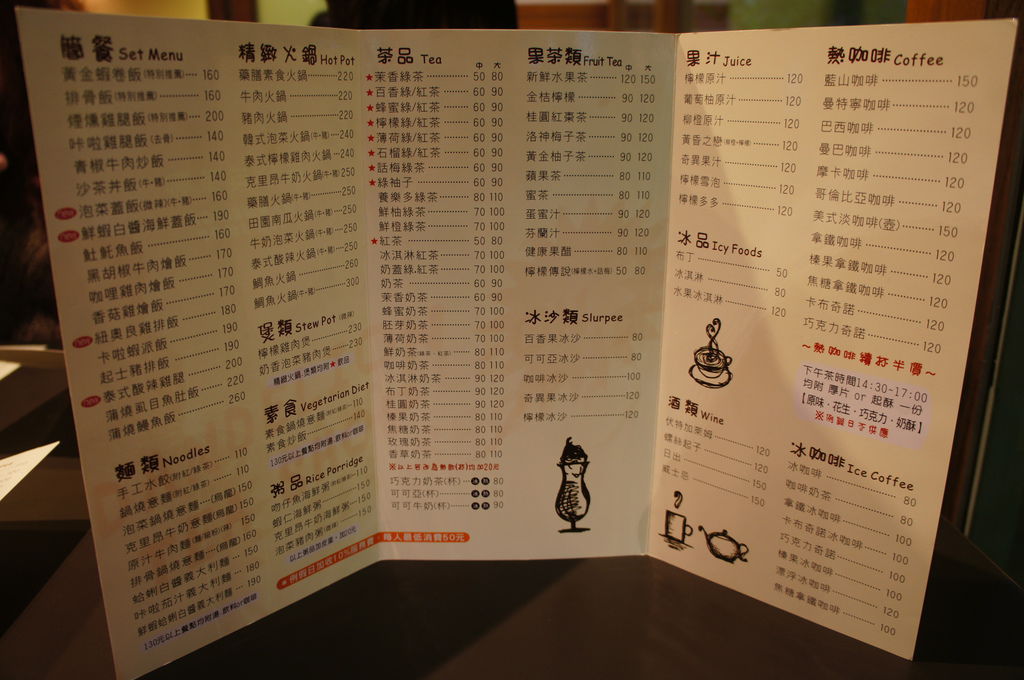 簡餐 Set Menu
黃金蝦卷飯(特別推薦) 160
排骨飯(特別推薦) 160
煙燻雞腿飯(特別推薦) 200
咔啦雞腿飯(去骨) 140
青椒牛肉炒飯 140
沙茶丼飯(牛·豬) 140
泡菜蓋飯(微辣)(牛·豬) 160
鮮蝦白醬海鮮蓋飯 190
魠魠魚飯 160
黑胡椒牛肉燴飯 170
咖哩雞肉燴飯 170
香菇雞燴飯 170
紐奧良雞排飯 180
卡啦蝦派飯 190
起士豬排飯 190
泰式酸辣雞腿 200
蒲燒虱目魚肚飯 220
蒲燒鰻魚飯 260
麵類 Noodles
手工水餃(附紅/綠茶) 110
鍋燒意麵(附紅/綠茶) 110
泡菜鍋燒意麵(烏龍) 150
克里昂牛奶意麵(烏龍) 150
原汁牛肉麵
排骨鍋燒意麵(烏龍) 150
蛤蜊白醬義大利麵 150
咔啦茄汁義大利麵 180
鮮蝦蛤蜊白醬義大利麵 190
130元以上餐點均附湯.飲料or咖啡
精緻火鍋 Hot Pot
藥膳素食火鍋 220
牛肉火鍋 220
豬肉火鍋 220
韓式泡菜火鍋(牛·豬) 240
泰式檸檬雞肉火鍋 240
克里昂牛奶火鍋(牛·豬) 250
藥膳火鍋(牛·豬) 250
田園南瓜火鍋(牛·豬) 250
牛奶泡菜火鍋(牛·豬) 250
泰式酸辣火鍋(牛·豬) 250
鯛魚火鍋 260
鯛魚火鍋(牛·豬) 300
煲類 Stew Pot (微辣)
檸檬雞肉煲 230
奶香泡菜豬肉煲 230
精緻火鍋.煲類均附★飲品
素食 Vegetarian Diet
素食鍋燒意麵(附紅綠茶) 110
素食炒飯 140
130元以上餐點均附湯.飲料or咖啡
粥品 Rice Porridge
吻仔魚海鮮粥(附紅綠茶) 110
蝦仁海鮮粥 150
克里昂牛奶海鮮粥 150
泡菜豬肉粥(微辣) 150
以上粥品加皮蛋.加20元
★例假日加收10%服務費.每人最低消費50元
茶品 Tea 中 大
★茉香綠茶 50 80
★百香綠/紅茶 60 90
★蜂蜜綠/紅茶 60 90
★檸檬綠/紅茶 60 90
★薄荷綠/紅茶 60 90
★石榴綠/紅茶 60 90
★話梅綠茶 60 90
★綠柚子 60 90
養樂多綠茶 80 110
鮮柚綠茶 70 100
鮮橙綠茶 70 100
★紅茶 50 80
冰淇淋紅茶 70 100
奶蓋綠.紅茶 70 100
奶茶 60 90
茉香奶茶 60 90
蜂蜜奶茶 70 100
胚芽奶茶 70 100
薄荷奶茶 70 100
鮮奶茶(綠茶·紅茶) 80 110
咖啡奶茶 80 110
冰淇淋奶茶 90 120
布丁奶茶 90 120
桂圓奶茶 90 120
榛果奶茶 80 110
焦糖奶茶 80 110
玫瑰奶茶 80 110
香草奶茶 80 110
※以上若改為熱飲(杯)均加20元
巧克力奶茶(杯) 冰 熱 80
可可亞(杯) 冰 熱 80
可可牛奶(杯) 冰 熱 90
果茶類 Fruit Tea 中 大
新鮮水果茶 120 150
金桔檸檬 90 120
桂圓紅棗茶 90 120
洛神梅子茶 90 120
黃金柚子茶 90 120
蘋果茶 80 110
蜜茶 80 110
蛋蜜汁 90 120
芬蘭汁 90 120
健康果醋 80 110
檸檬傳說(檸檬水+話梅) 50 80
冰沙類 Slurpee
百香果冰沙 80
可可亞冰沙 80
咖啡冰沙 100
奇異果冰沙 120
檸檬冰沙 120
果汁 Juice
檸檬原汁 120
葡萄柚原汁 120
柳橙原汁 120
黃昏之戀(柳橙+檸檬) 120
奇異果汁 120
檸檬雪泡 120
檸檬多多 120
冰品 Icy Foods
布丁 50
冰淇淋 80
水果冰淇淋 120
酒類 Wine
伏特加萊姆 120
螺絲起子 120
日出 150
威士忌 150
熱咖啡 Coffee
藍山咖啡 150
曼特寧咖啡 120
巴西咖啡 120
曼巴咖啡 120
摩卡咖啡 120
哥倫比亞咖啡 120
美式淡咖啡(壺) 150
拿鐵咖啡 120
榛果拿鐵咖啡 120
焦糖拿鐵咖啡 120
卡布奇諾 120
巧克力奇諾 120
~熱咖啡續杯半價~
下午茶時間14:30~17:00
均附 厚片 or 起酥 一份
【原味·花生·巧克力·奶酥】
※例假日不供應
冰咖啡 Ice Coffee
冰咖啡 80
咖啡奶茶 80
拿鐵冰咖啡 80
卡布奇諾冰咖啡 100
巧克力奇諾 100
榛果冰咖啡 100
漂浮冰咖啡 120
焦糖拿鐵冰咖啡 100